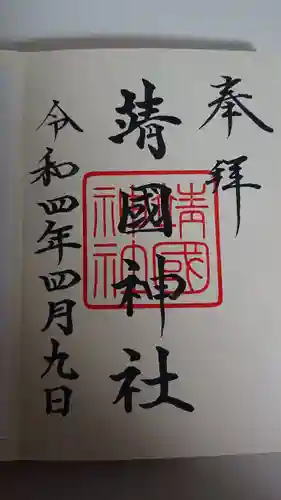 奉拝
靖國神社
令和四年四月九日
靖國
神社